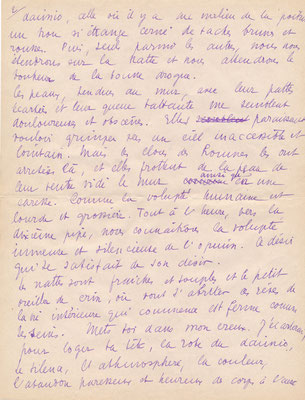 daimio, celle où il y a au milieu de la poitrine
un trou si étrange cerné de taches brunes et
rousses. Puis, seuls parmi les autres, nous nous
étendrons sur la natte et nous attendrons le
bonheur de la bonne drogue.
Les peaux, pendues au mur, avec leur pattes
écartées et leur queue ballante me semblent
douloureuses et obscènes. Elles paraissent
vouloir grimper vers un ciel inaccessible et
lointain. Mais les clous des hommes les ont
arrêtées là, et elles frottent de la peau de
leur ventre vidé le mur ainsi qu'en une
caresse. Comme la volupté humaine est
lourde et grossière. Tout à l'heure, vers la
dixième pipe, nous connaîtrons la volupté
immense et silencieuse de l'opium. Le désir
qui se satisfait de son désir.
La natte sont fraîches et souples et le petit
oreiller de crin, où vont s'abriter les rêves de
la vie intérieure qui commence est ferme comme
les seins. Mets toi dans mon creux. J'ai
pour loger ta tête, la robe du daimio,
le silence, et athmosphère, la couleur,
l'abandon paresseux et heureux de corps à l'aise